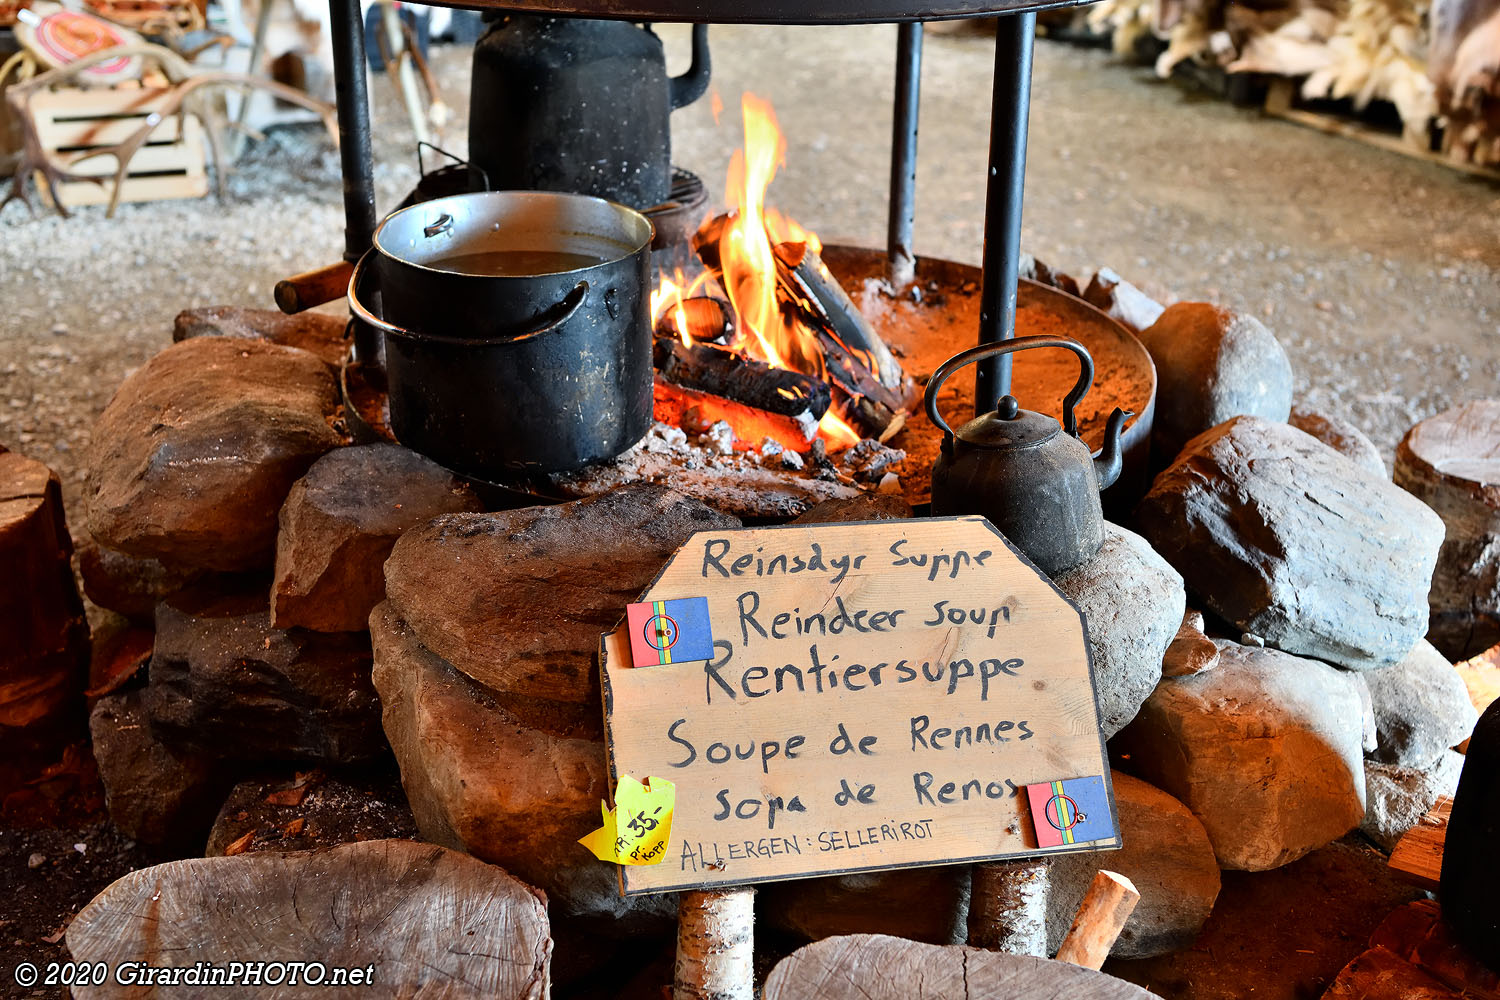 Reinsdyr Suppe
Reindeer soup
Rentiersuppe
Soupe de Rennes
Sopa de Renos
ALLERGEN: SELLERIROT
35,-
pr kopp
© 2020 GirardinPHOTO.net